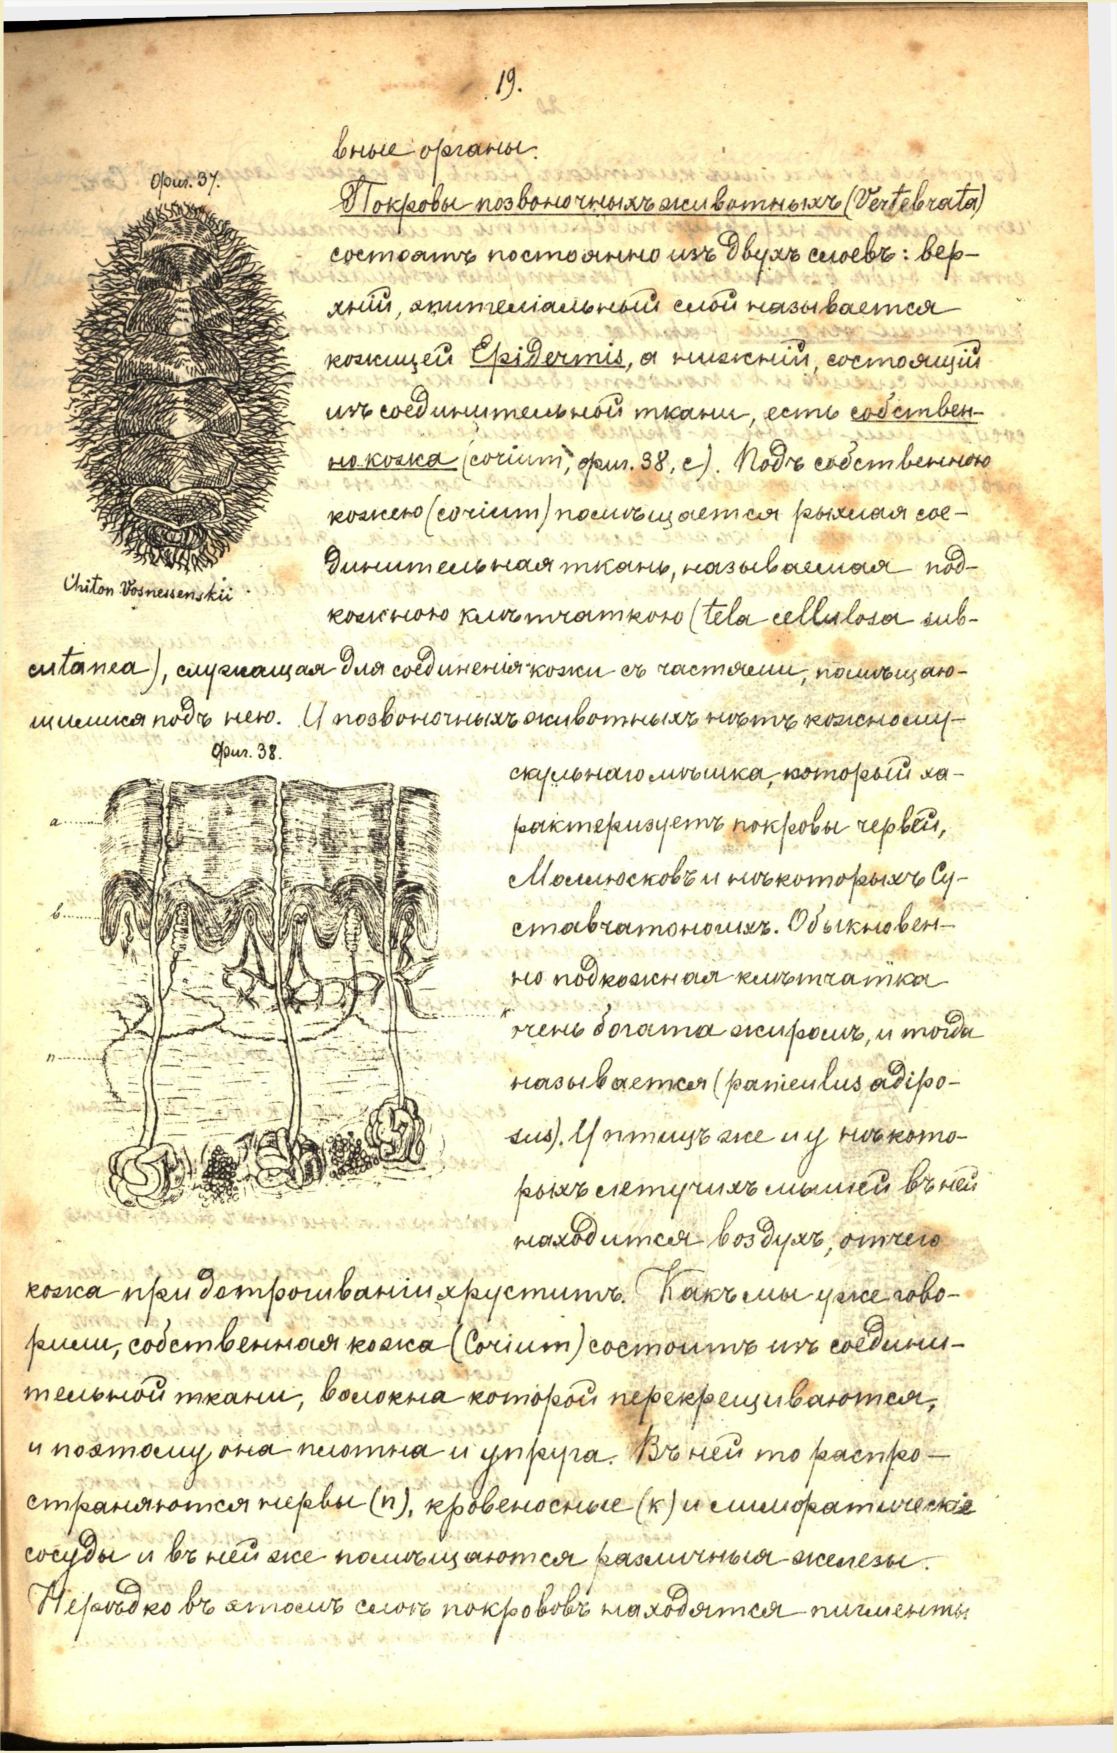 19.
вные органы.
Фиг. 37.
Покровы позвоночныхъ животныхъ (Vertebrata)
состоятъ постоянно изъ двухъ слоевъ: вер-
хній, эпителіальный слой называется
кожицей Epidermis, а нижній, состоящій
изъ соединительной ткани, есть собствен-
но кожа (corium, фиг. 38, c). Подъ собственною
кожею (corium) помѣщается рыхлая сое-
динительная ткань, называемая под-
Chiton Vosnessenskii
кожною клѣтчаткою (tela cellulosa sub-
cutanea), служащая для соединенія кожи съ частями, помѣщаю-
щимися подъ нею. У позвоночныхъ животныхъ нѣтъ кожному-
Фиг. 38.
скульнаго мѣшка, который ха-
рактеризуетъ покровы червей,
Моллюсковъ и нѣкоторыхъ Су-
ставчатоногихъ. Обыкновен-
но подкожная клѣтчатка
очень богата жиромъ, и тогда
называется (panieulus adipo-
sus). У птицъ же и у нѣкото-
рыхъ летучихъ мышей въ ней
находится воздухъ, отчего
a
b
n
кожа при дотрогиваніи хруститъ. Какъ мы уже гово-
рили, собственная кожа (Corium) состоитъ изъ соедини-
тельной ткани, волокна которой перекрещиваются,
и поэтому она плотна и упруга. Въ ней то распро-
страняются нервы (n), кровеносные (к) и лимфатическіе
сосуды и въ ней же помѣщаются различныя железы.
Нерѣдко въ этомъ слоѣ покрововъ находятся пигменты